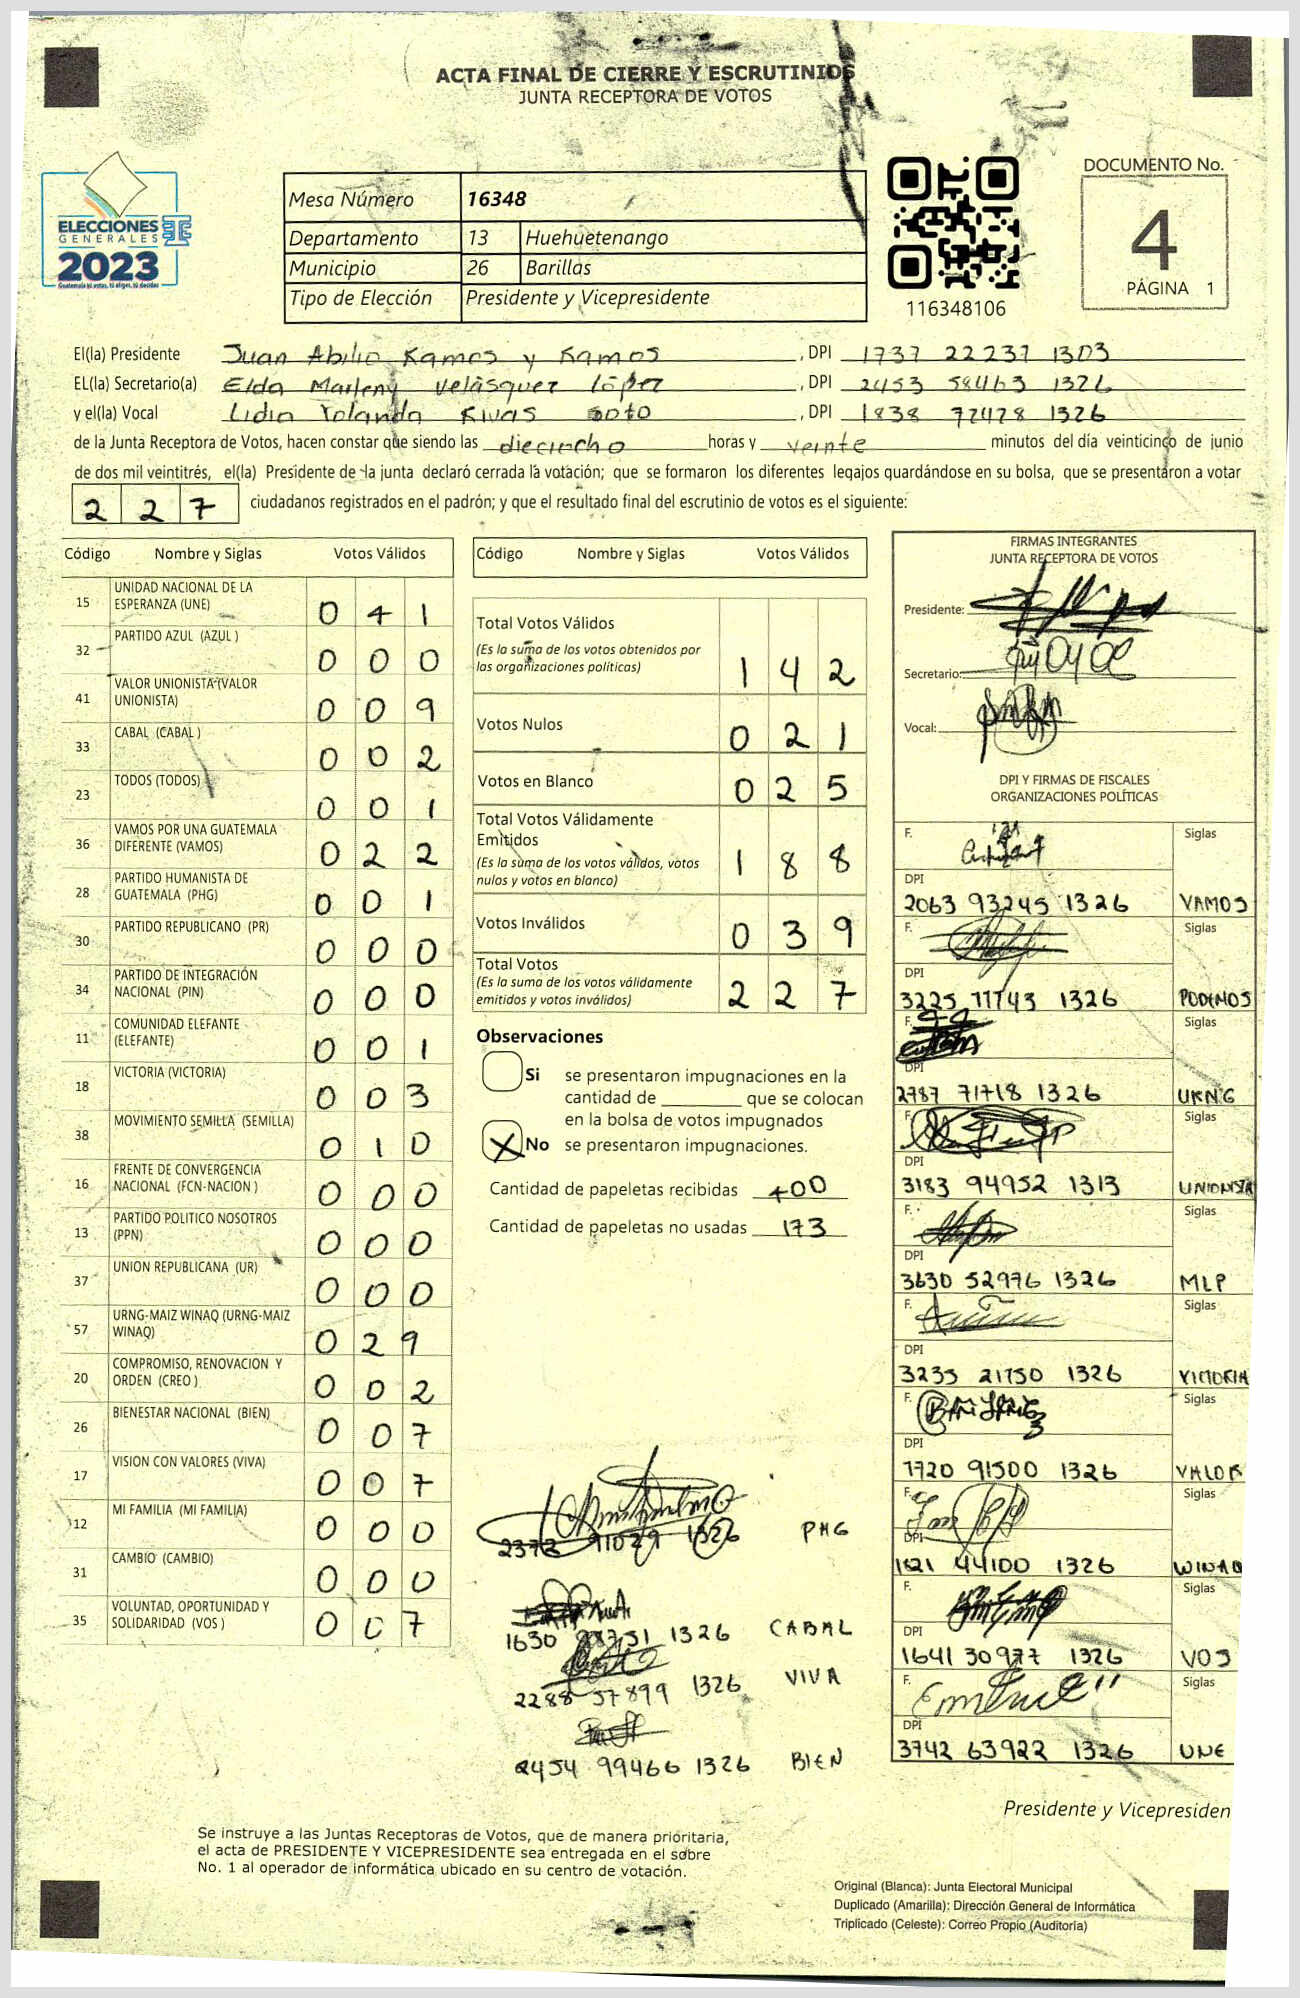 ACTA FINAL DE CIERRE Y ESCRUTINIOS
JUNTA RECEPTORA DE VOTOS
ELECCIONES
GENERALES
2023
Guatemala tú votas, tú eliges, tú decides
Mesa Número 16348
Departamento 13 Huehuetenango
Municipio 26 Barillas
Tipo de Elección Presidente y Vicepresidente
116348106
DOCUMENTO No.
4
PÁGINA 1
El(la) Presidente Juan Abilio Ramos y Ramos , DPI 1737 22237 1303
EL(la) Secretario(a) Elda Marleny Velásquez López , DPI 2453 58463 1326
y el(la) Vocal Lidia Yolanda Rivas Soto , DPI 1838 72478 1326
de la Junta Receptora de Votos, hacen constar que siendo las dieciocho horas y veinte minutos del día veinticinco de junio
de dos mil veintitrés, el(la) Presidente de la junta declaró cerrada la votación; que se formaron los diferentes legajos guardándose en su bolsa, que se presentaron a votar
227 ciudadanos registrados en el padrón; y que el resultado final del escrutinio de votos es el siguiente:
Código Nombre y Siglas Votos Válidos
15 UNIDAD NACIONAL DE LA ESPERANZA (UNE) 041
32 PARTIDO AZUL (AZUL ) 000
41 VALOR UNIONISTA (VALOR UNIONISTA) 009
33 CABAL (CABAL ) 002
23 TODOS (TODOS) 001
36 VAMOS POR UNA GUATEMALA DIFERENTE (VAMOS) 022
28 PARTIDO HUMANISTA DE GUATEMALA (PHG) 001
30 PARTIDO REPUBLICANO (PR) 000
34 PARTIDO DE INTEGRACIÓN NACIONAL (PIN) 000
11 COMUNIDAD ELEFANTE (ELEFANTE) 001
18 VICTORIA (VICTORIA) 003
38 MOVIMIENTO SEMILLA (SEMILLA) 010
16 FRENTE DE CONVERGENCIA NACIONAL (FCN-NACION ) 000
13 PARTIDO POLITICO NOSOTROS (PPN) 000
37 UNION REPUBLICANA (UR) 000
57 URNG-MAIZ WINAQ (URNG-MAIZ WINAQ) 029
20 COMPROMISO, RENOVACION Y ORDEN (CREO ) 002
26 BIENESTAR NACIONAL (BIEN) 007
17 VISION CON VALORES (VIVA) 007
12 MI FAMILIA (MI FAMILIA) 000
31 CAMBIO (CAMBIO) 000
35 VOLUNTAD, OPORTUNIDAD Y SOLIDARIDAD (VOS ) 007
Código Nombre y Siglas Votos Válidos
Total Votos Válidos
(Es la suma de los votos obtenidos por
las organizaciones políticas) 142
Votos Nulos 021
Votos en Blanco 025
Total Votos Válidamente
Emitidos
(Es la suma de los votos válidos, votos
nulos y votos en blanco) 188
Votos Inválidos 039
Total Votos
(Es la suma de los votos válidamente
emitidos y votos inválidos) 227
Observaciones
Si se presentaron impugnaciones en la
cantidad de ________ que se colocan
en la bolsa de votos impugnados
X No se presentaron impugnaciones.
Cantidad de papeletas recibidas 400
Cantidad de papeletas no usadas 173
2372 91029 1326 PHG
1630 1326 CABAL
2288 57899 1326 VIVA
2454 99466 1326 BIEN
FIRMAS INTEGRANTES
JUNTA RECEPTORA DE VOTOS
Presidente:
Secretario:
Vocal:
DPI Y FIRMAS DE FISCALES
ORGANIZACIONES POLÍTICAS
F. Siglas
DPI
2063 93245 1326 VAMOS
F. Siglas
DPI
3225 77743 1326 PODEMOS
F. Siglas
DPI
2787 71718 1326 URNG
F. Siglas
DPI
3183 94952 1313 UNIONISTA
F. Siglas
DPI
3630 52976 1326 MLP
F. Siglas
DPI
3235 21750 1326 VICTORIA
F. Siglas
DPI
1720 91500 1326 VALOR
F. Siglas
DPI
1821 44100 1326 WINAQ
F. Siglas
DPI
1641 30977 1326 VOS
F. Siglas
DPI
3742 63922 1326 UNE
Presidente y Vicepresiden
Se instruye a las Juntas Receptoras de Votos, que de manera prioritaria,
el acta de PRESIDENTE Y VICEPRESIDENTE sea entregada en el sobre
No. 1 al operador de informática ubicado en su centro de votación.
Original (Blanca): Junta Electoral Municipal
Duplicado (Amarilla): Dirección General de Informática
Triplicado (Celeste): Correo Propio (Auditoría)